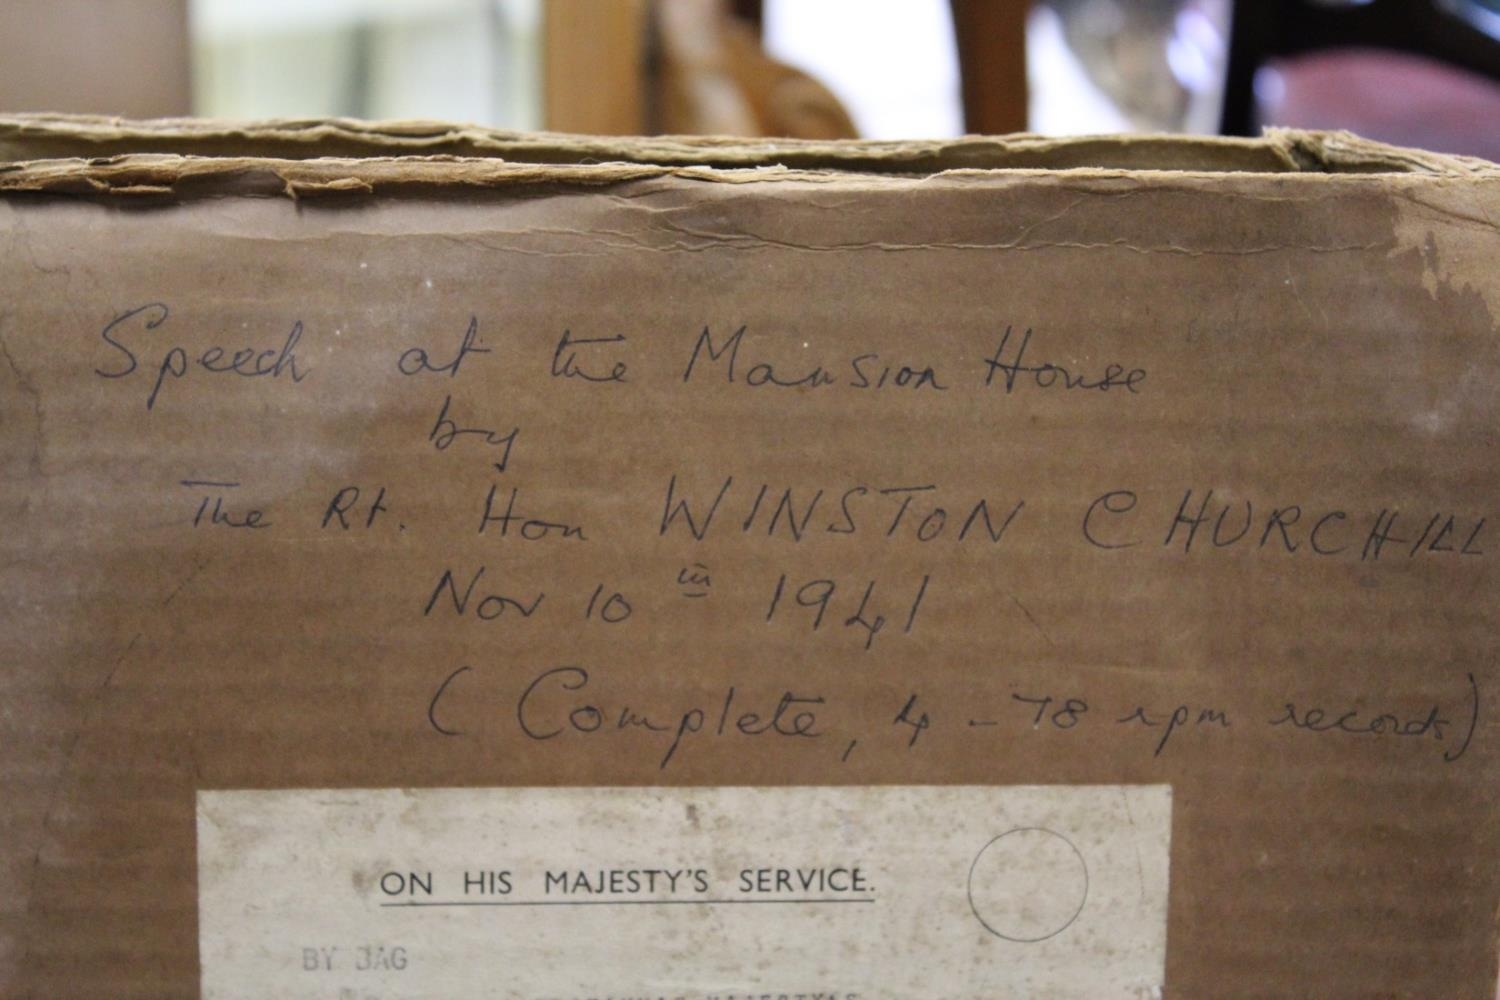 Speech at the Mansion House
by
The Rt. Hon WINSTON CHURCHILL
Nov 10th 1941
(Complete, 4 - 78 rpm records)
ON HIS MAJESTY'S SERVICE.
BY BAG
MAJESTY'S